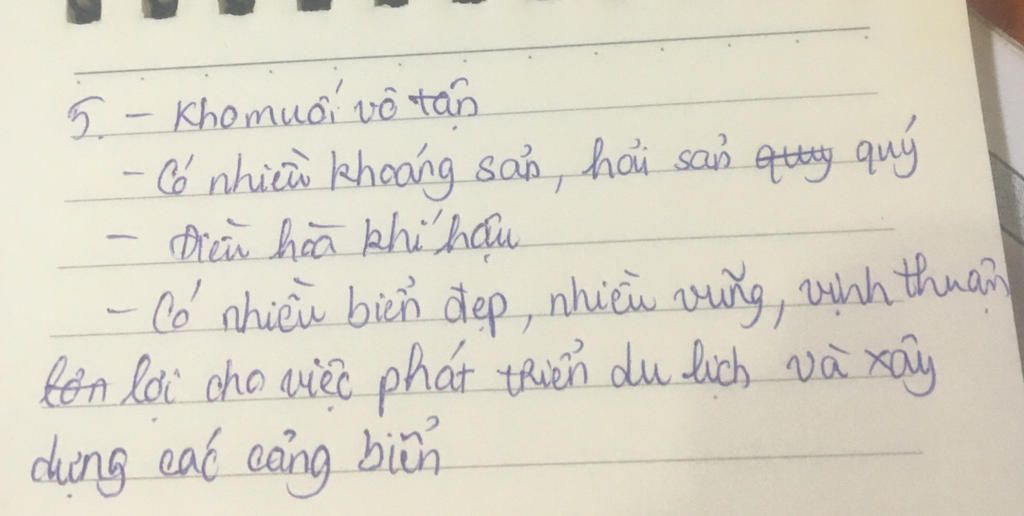 5. - Kho muối vô tận
- Có nhiều khoáng sản, hải sản quy quý
- Điều hoà khí hậu
- Có nhiều biển đẹp, nhiều vũng, vịnh thuận
lợi cho việc phát triển du lịch và xây
dựng các cảng biển